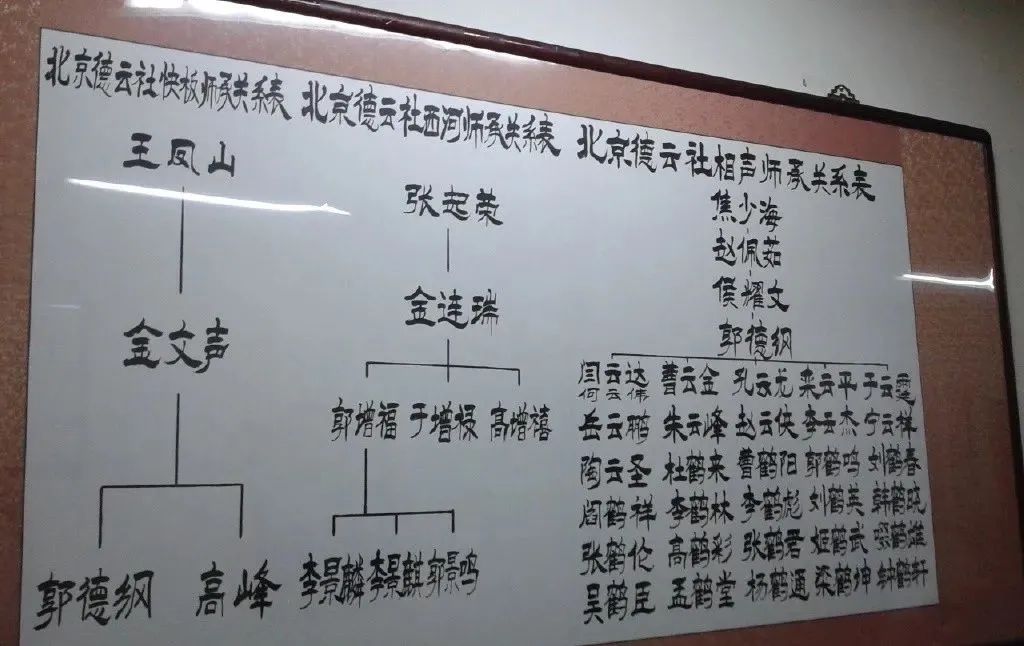 北京德云社快板师承关系表
王凤山
金文声
郭德纲 高峰
北京德云社西河师承关系表
张起荣
金连瑞
郭增福 于增禄 高增禧
李景麟 李景麒 郭景鸣
北京德云社相声师承关系表
焦少海
赵佩茹
侯耀文
郭德纲
闫云达 曹云金 孔云龙 栾云平 于云霆
何云伟
岳云鹏 朱云峰 赵云侠 李云杰 宁云祥
陶云圣 杜鹤来 曹鹤阳 郭鹤鸣 刘鹤春
阎鹤祥 李鹤林 李鹤彪 刘鹤英 韩鹤晓
张鹤伦 高鹤彩 张鹤君 姬鹤武
吴鹤臣 孟鹤堂 杨鹤通 梁鹤坤 钟鹤轩